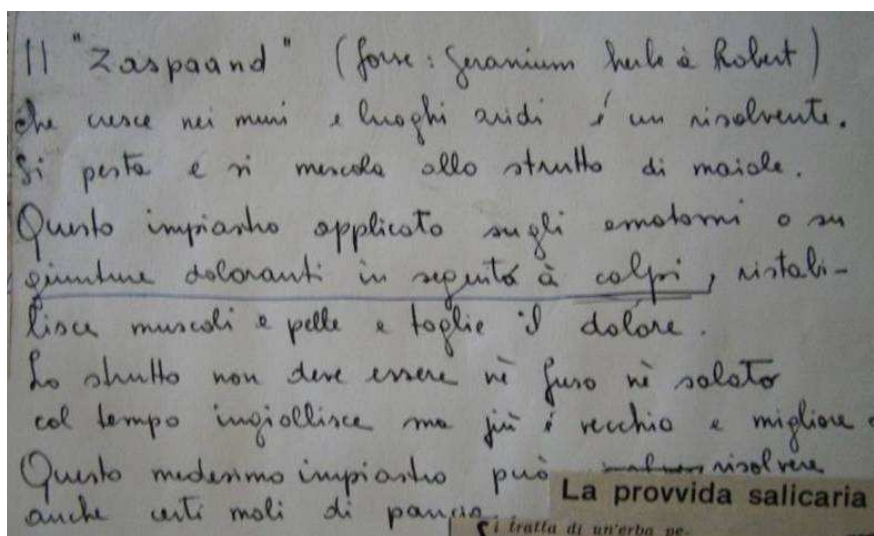 Il "Zaspaand" (forse: Geranium herbe à Robert)
che cresce nei muri e luoghi aridi é un risolvente.
Si pesta e si mescola allo strutto di maiale.
Questo impiastro applicato sugli ematomi o su
giunture doloranti in seguito à colpi, ristabi-
lisce muscoli e pelle e toglie il dolore.
Lo strutto non deve essere nè fuso nè salato
col tempo ingiallisce ma più è vecchio e migliore è
Questo medesimo impiastro può risolvere
anche certi mali di pancia
La provvida salicaria
Si tratta di un'erba pe-